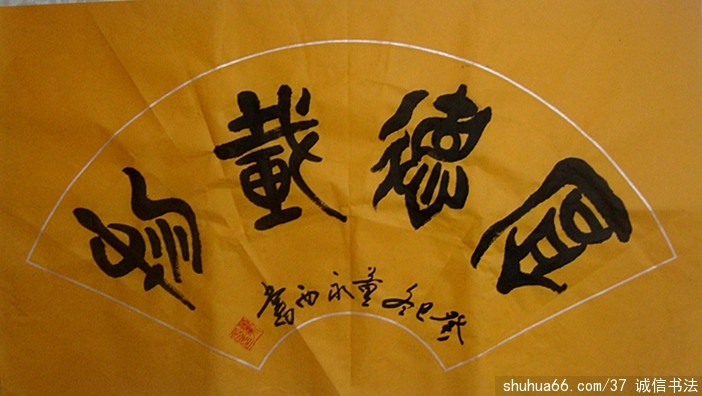 厚德載物
癸巳冬董永西書
shuhua66.com/37 诚信书法